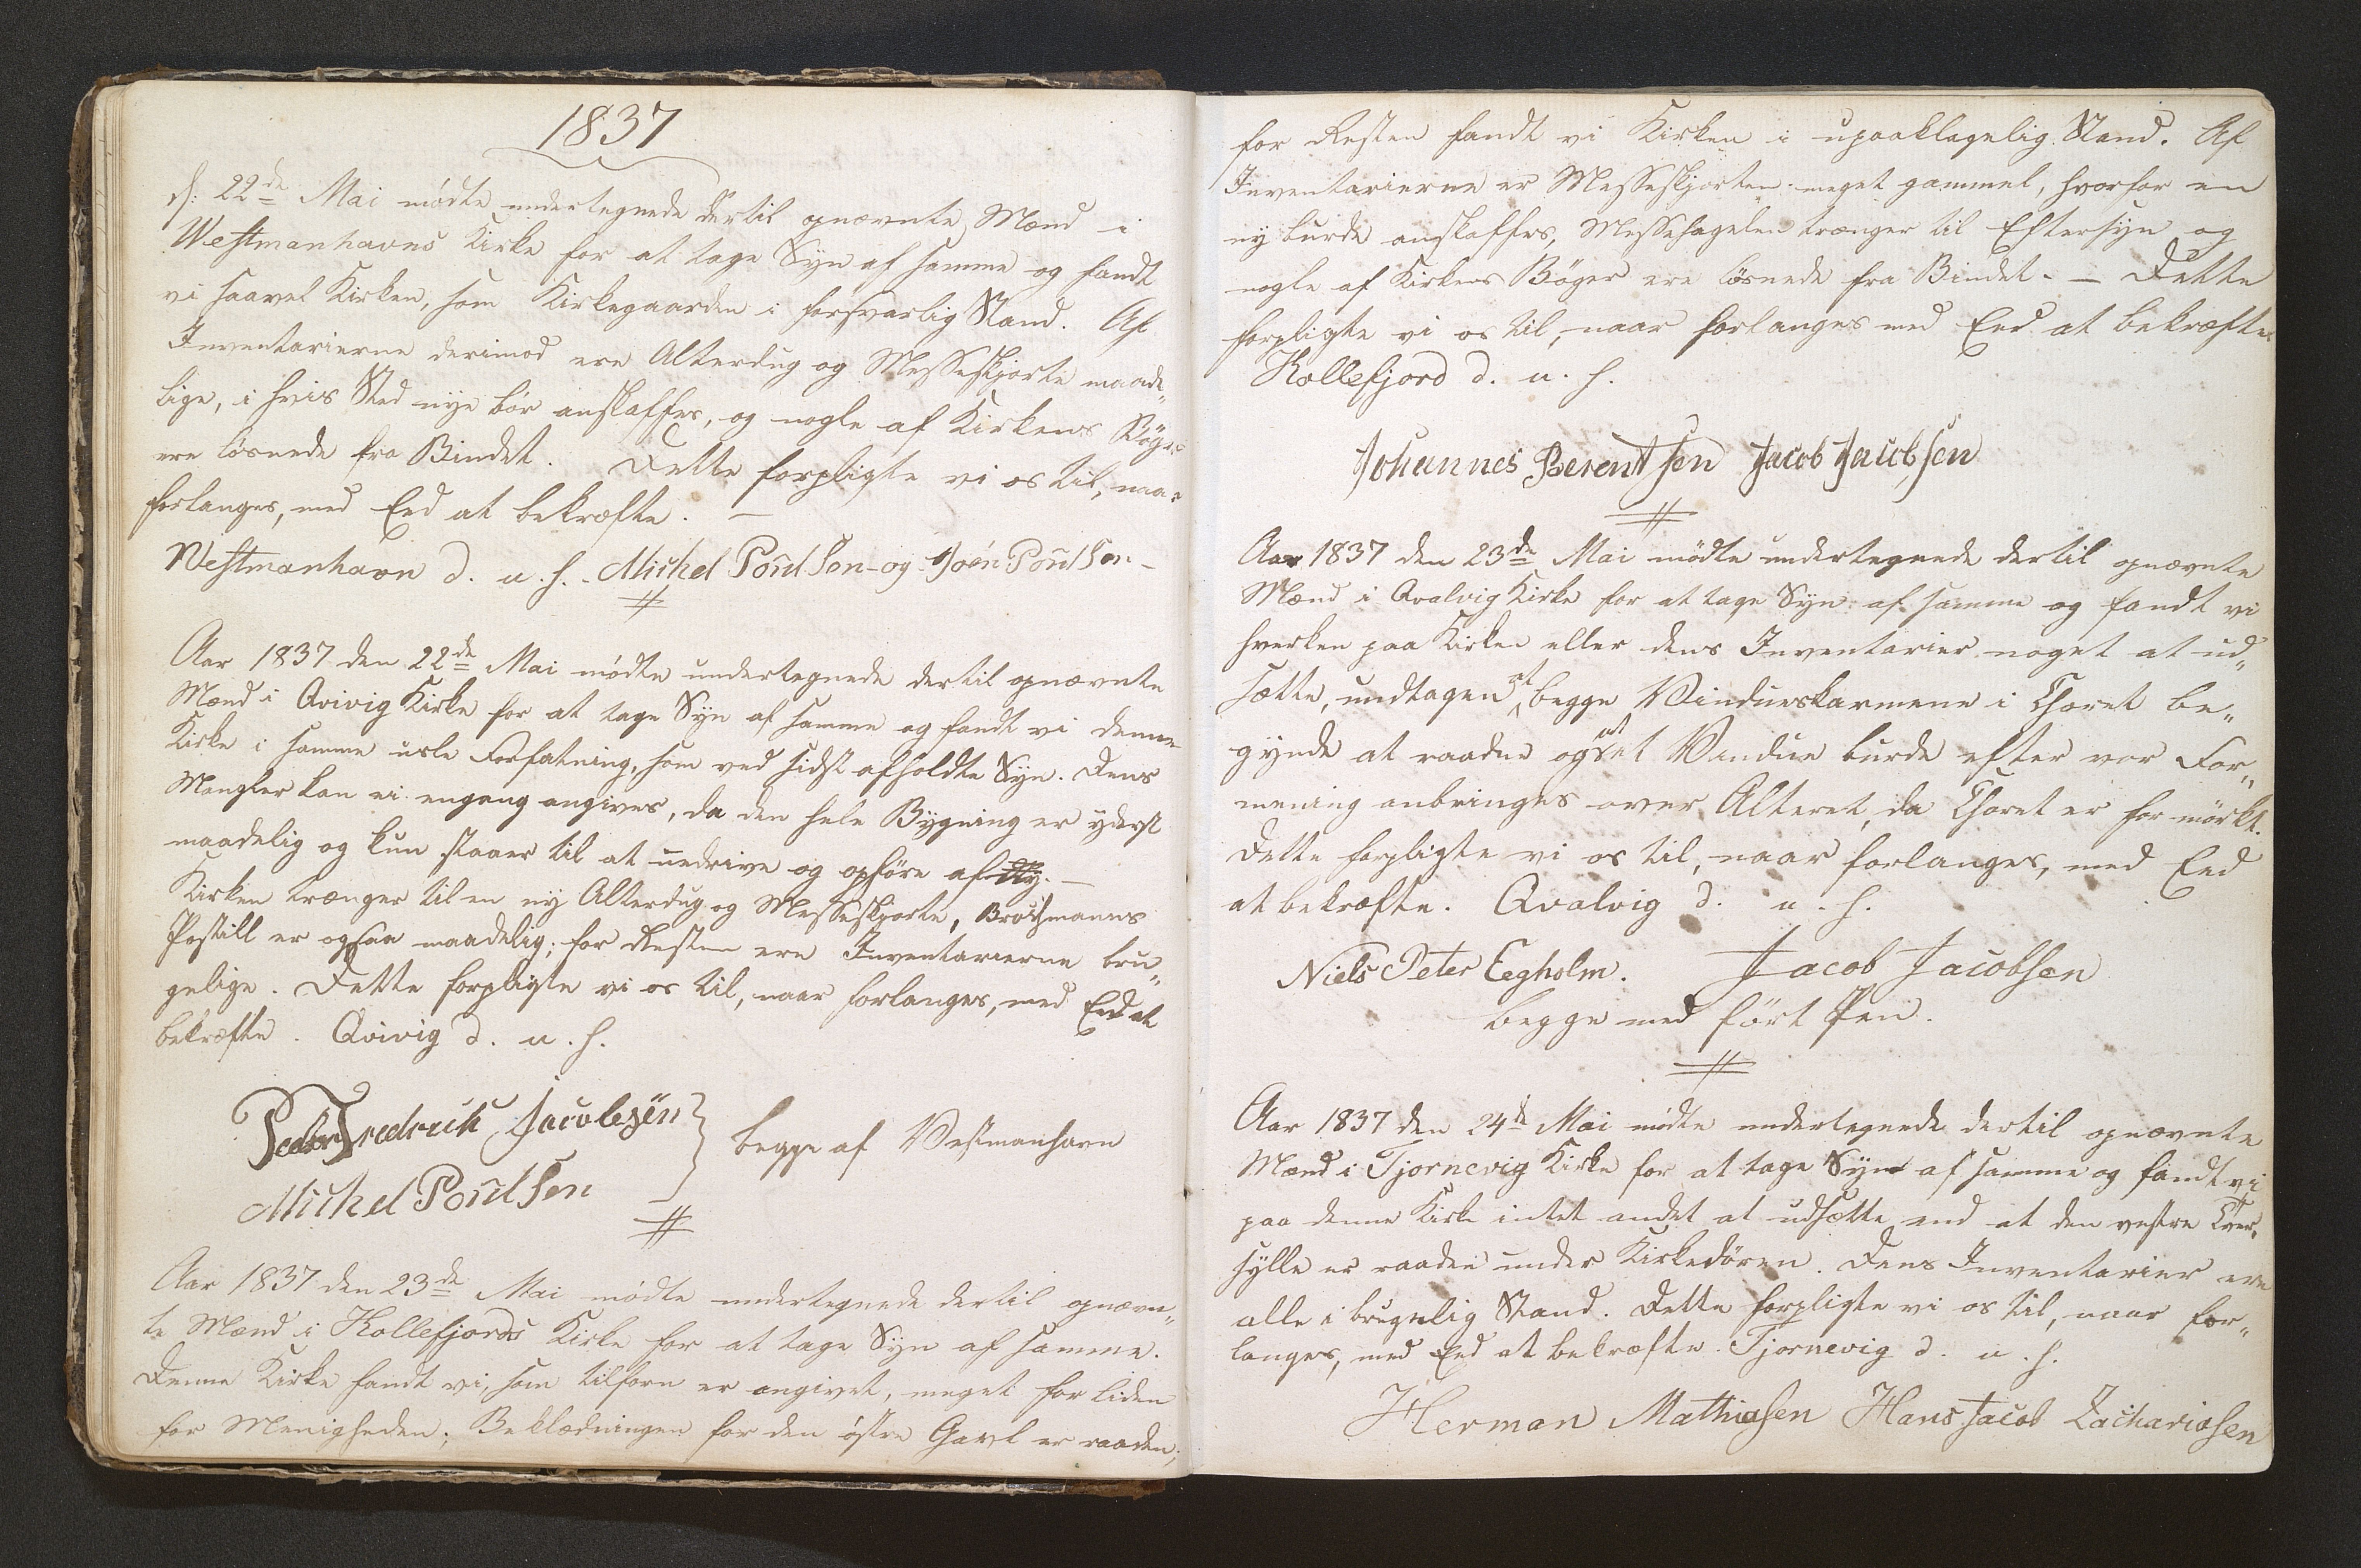 1837
d: 22de Mai mödte undertegnede dertil opnævnte Mænd i
Westmanhavns Kirke for at tage Syn af samme og fandt
vi saavel Kirken, som Kirkegaarden i forsvarlig Stand. Af
Inventarierne derimod ere Alterdug og Messeskjorte maade„
lige, i hvis Sted nye bör anskaffes, og nogle af Kirkens Böger
ere lösnede fra Bindet. Dette forpligte vi os til, naar
forlanges, med Eed at bekræfte. —
Westmanhavn d. u. s. Michel Poulsen - og Joen Poulsen -
Aar 1837 den 22de Mai mödte undertegnede dertil opnævnte
Mænd i Qvivig Kirke for at tage Syn af samme og fandt vi denne
Kirke i samme usle Forfatning, som ved sidst afholdte Syn. Dens
Mangler kan ei engang angives, da den hele Bygning er yderst
maadelig og kun staaer til at nedrive og opföre af Ny. —
Kirken trænger til en ny Alterdug og Messeskjorte, Brochmanns
Postill er ogsaa maadelig; for Resten ere Inventarierne bru„
gelige. Dette forpligte vi os til, naar forlanges, med Eed at
bekræfte. Qvivig d. u. s.
Peder Fredrich Jacobsen
Michel Poulsen
begge af Vestmanhavn
Aar 1837 den 23de Mai mödte undertegnede dertil opnævn„
te Mænd i Kollefjords Kirke for at tage Syn af samme.
Denne Kirke fandt vi, som tilforn er angivet, meget for liden
for Menigheden; Beklædningen for den östre Gavl er raaden;
for Resten fandt vi Kirken i upaaklagelig Stand. Af
Inventarierne er Messeskjorten meget gammel, hvorfor en
ny burde anskaffes, Messehagelen trænger til Eftersyn og
nogle af Kirkens Böger ere lösnede fra Bindet. — Dette
forpligte vi os til, naar forlanges med Eed at bekræfte
Kollefjord d. u. s.
Johannes Berentsen Jacob Jacobsen
Aar 1837 den 23de Mai mödte undertegnede dertil opnævnte
Mænd i Qvalvig Kirke for at tage Syn af samme og fandt vi
hverken paa Kirken eller dens Inventarier noget at ud„
sætte, undtagen at begge Vindueskarmene i Choret be„
gynde at raadne og at et Vindue burde efter vor For„
mening anbringes over Alteret, da Choret er for mörkt.
Dette forpligte vi os til, naar forlanges, med Eed
at bekræfte. Qvalvig d. u. s.
Niels Peter Eegholm. Jacob Jacobsen
begge med fört Pen.
Aar 1837 den 24de Mai mödte undertegnede dertil opnævnte
Mænd i Tjornevig Kirke for at tage Syn af samme og fandt vi
paa denne Kirke intet andet at udsætte end at den vestre Tver„
sylle er raaden under Kirkedören. Dens Inventarier ere
alle i brugelig Stand. Dette forpligte vi os til, naar for„
langes, med Eed at bekræfte. Tjornevig d. u. s.
Herman Mathiasen Hans Jacob Zachariasen